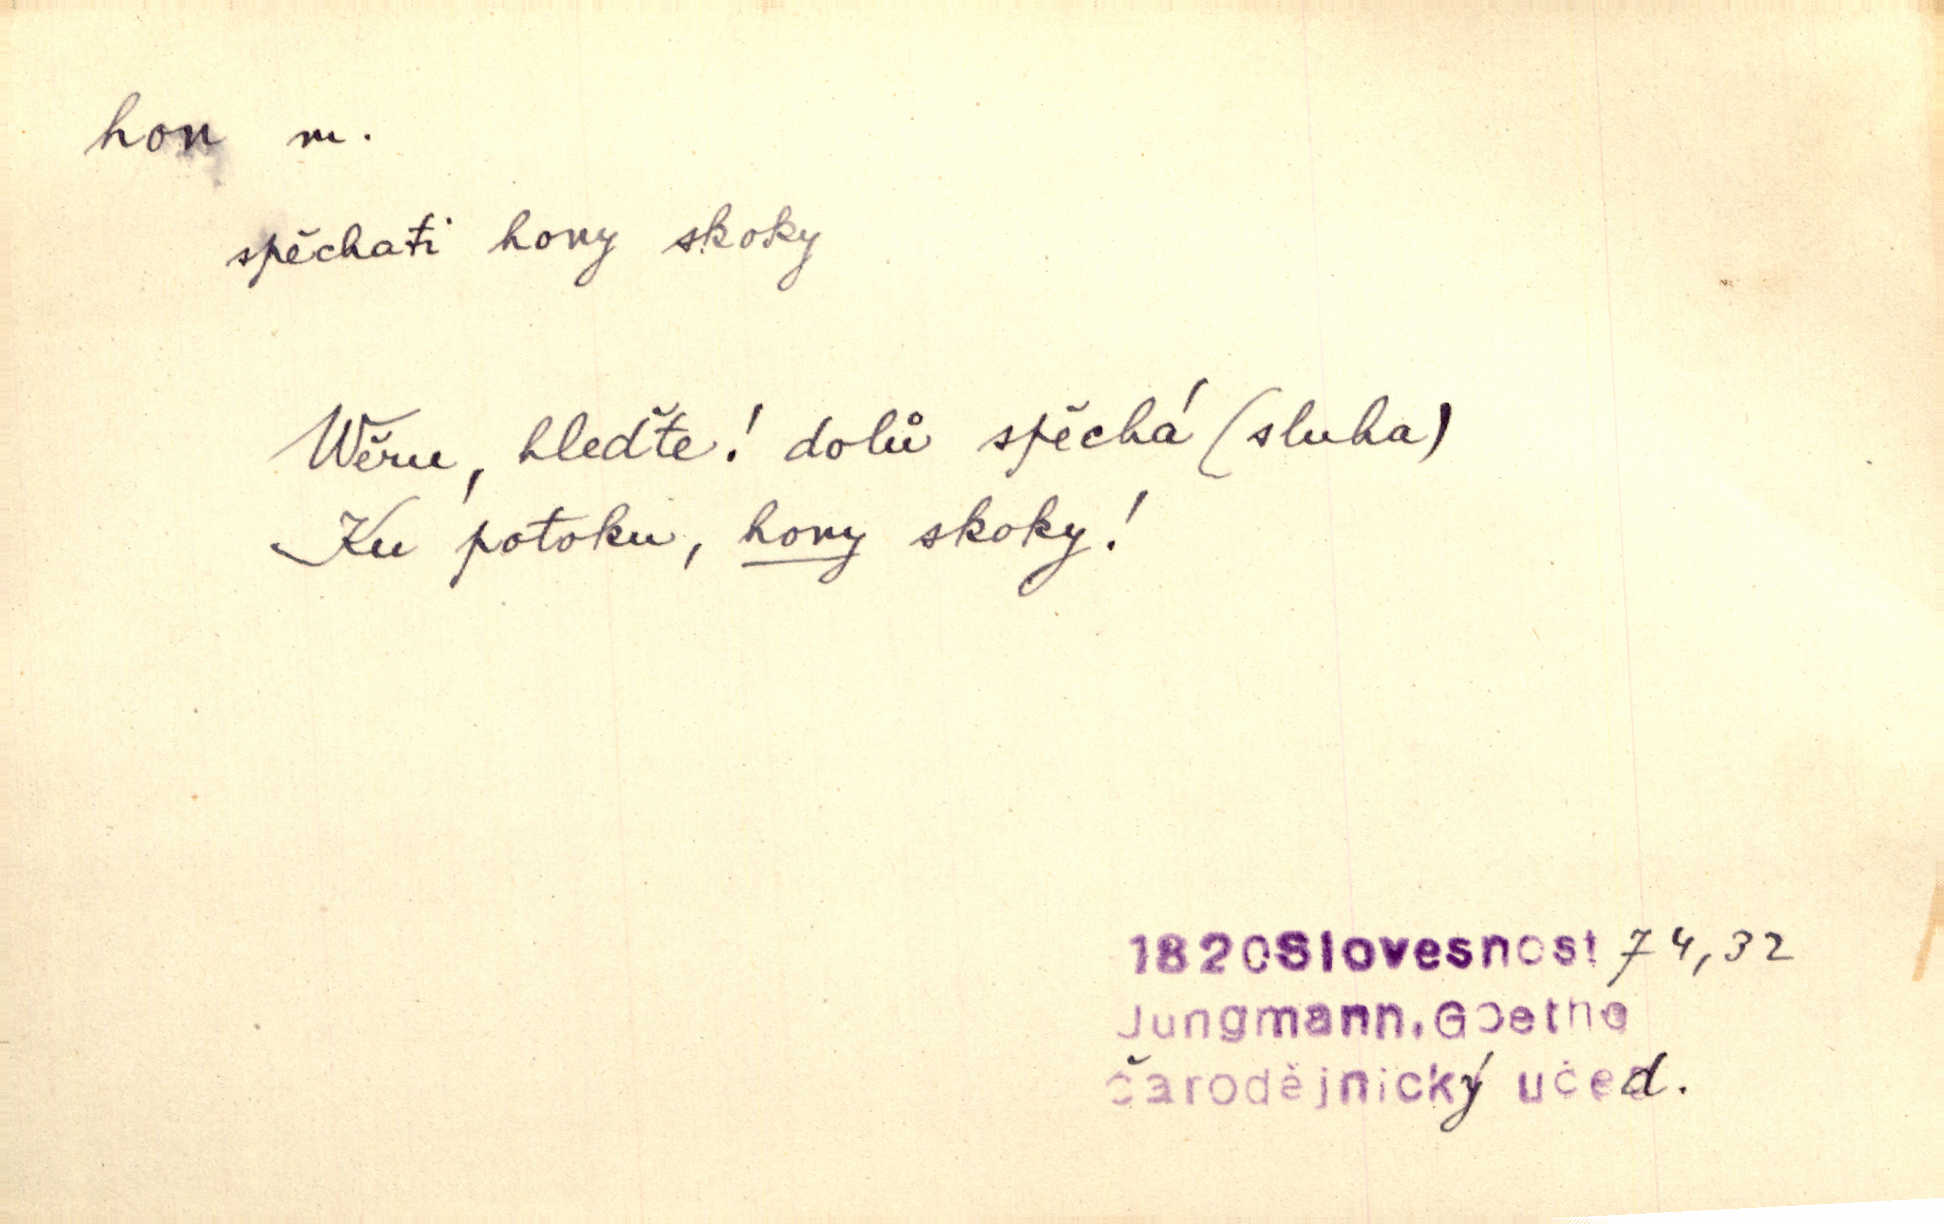 hon m.
spěchati hony skoky
Wěru, hleďte! dolů spěchá (sluha)
Ku potoku, hony skoky!
1820 Slovesnost 74,32
Jungmann, Goethe
Čarodějnický učed.